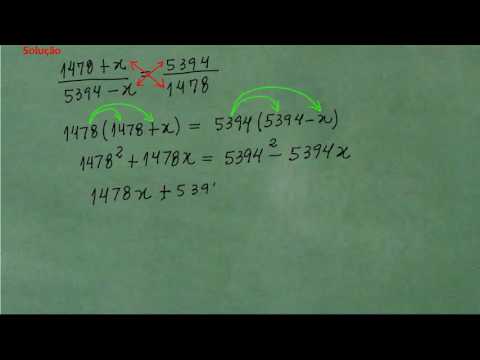 Solução
1478 + x / 5394 - x = 5394 / 1478
1478 (1478 + x) = 5394 (5394 - x)
1478² + 1478x = 5394² - 5394x
1478x + 539